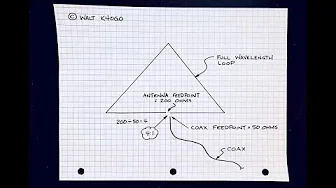 © WALT K4OGO
FULL WAVELENGTH
LOOP
ANTENNA FEEDPOINT
= 200 OHMS
200÷50=4
COAX FEEDPOINT = 50 OHMS
4:1
COAX